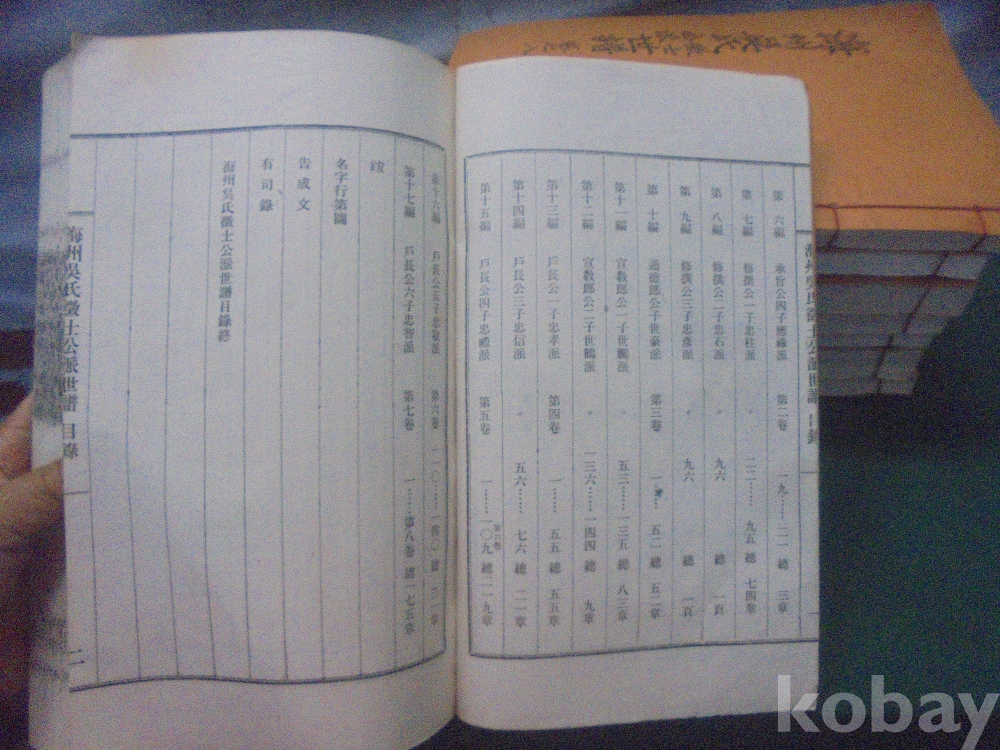 海州吳氏徵士公派世譜 目錄
第六編 承旨公四子應祿派 第二卷 一九……二一 總 三章
第七編 修撰公一子忠柱派 〃 二二……九五 總 七四章
第八編 修撰公二子忠石派 〃 九六 總 一頁
第九編 修撰公三子忠彦派 〃 九六 總 一頁
第十編 通德郎公子世豪派 第三卷 一……五二 總 五二章
第十一編 宣敎郎公一子世鵬派 〃 五三……一三五 總 八三章
第十二編 宣敎郎公二子世鶴派 〃 一三六……一四四 總 九章
第十三編 戶長公一子忠孝派 第四卷 一……五五 總 五五章
第十四編 戶長公三子忠信派 〃 五六……七六 總 二一章
第十五編 戶長公四子忠禮派 第五卷 一……第六卷一〇九 總二一九章
第十六編 戶長公五子忠敬派 第六卷 一一〇……一四〇 總 三一章
第十七編 戶長公六子忠智派 第七卷 一……第八卷 總一七五章
跋
名字行第圖
告成文
有司錄
海州吳氏徵士公派世譜目錄終
海州吳氏徵士公派世譜 目錄
二
kobay